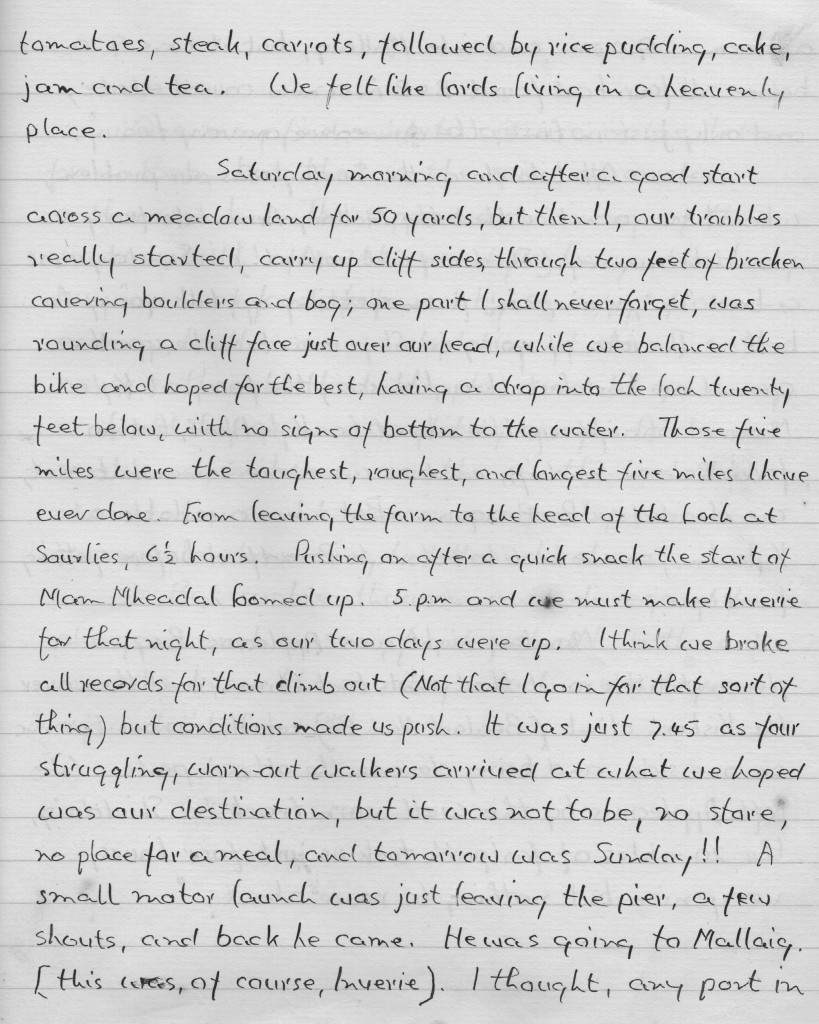 tomatoes, steak, carrots, followed by rice pudding, cake,
jam and tea. We felt like lords living in a heavenly
place.
Saturday morning and after a good start
across a meadow land for 50 yards, but then!!, our troubles
really started, carry up cliff sides, through two feet of bracken
covering boulders and bog; one part I shall never forget, was
rounding a cliff face just over our head, while we balanced the
bike and hoped for the best, having a drop into the loch twenty
feet below, with no signs of bottom to the water. Those five
miles were the toughest, roughest, and longest five miles I have
ever done. From leaving the farm to the head of the Loch at
Sourlies, 6½ hours. Pushing on after a quick snack the start of
Mam Mheadal loomed up. 5. p.m and we must make Inverie
for that night, as our two days were up. I think we broke
all records for that climb out (Not that I go in for that sort of
thing) but conditions made us push. It was just 7.45 as four
struggling, worn-out walkers arrived at what we hoped
was our destination, but it was not to be, no store,
no place for a meal, and tomorrow was Sunday!! A
small motor launch was just leaving the pier, a few
shouts, and back he came. He was going to Mallaig.
[this was, of course, Inverie). I thought, any port in